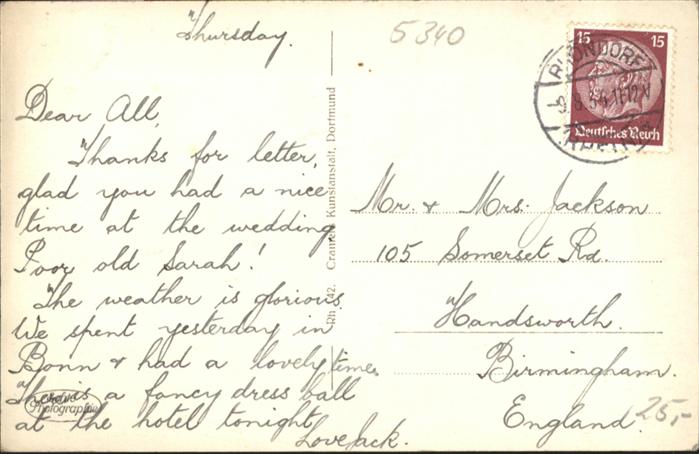 Thursday.
5340
15 15
Deutsches Reich
RHÖNDORF
Dear All,
Thanks for letter,
glad you had a nice
time at the wedding
Poor old Sarah!
The weather is glorious.
We spent yesterday in
Bonn & had a lovely time.
There is a fancy dress ball
at the hotel tonight
Love Jack.
Photographie
Rh 142. Cramers Kunstanstalt, Dortmund
Mr. & Mrs. Jackson
105 Somerset Rd.
Handsworth.
Birmingham.
England.
25,-